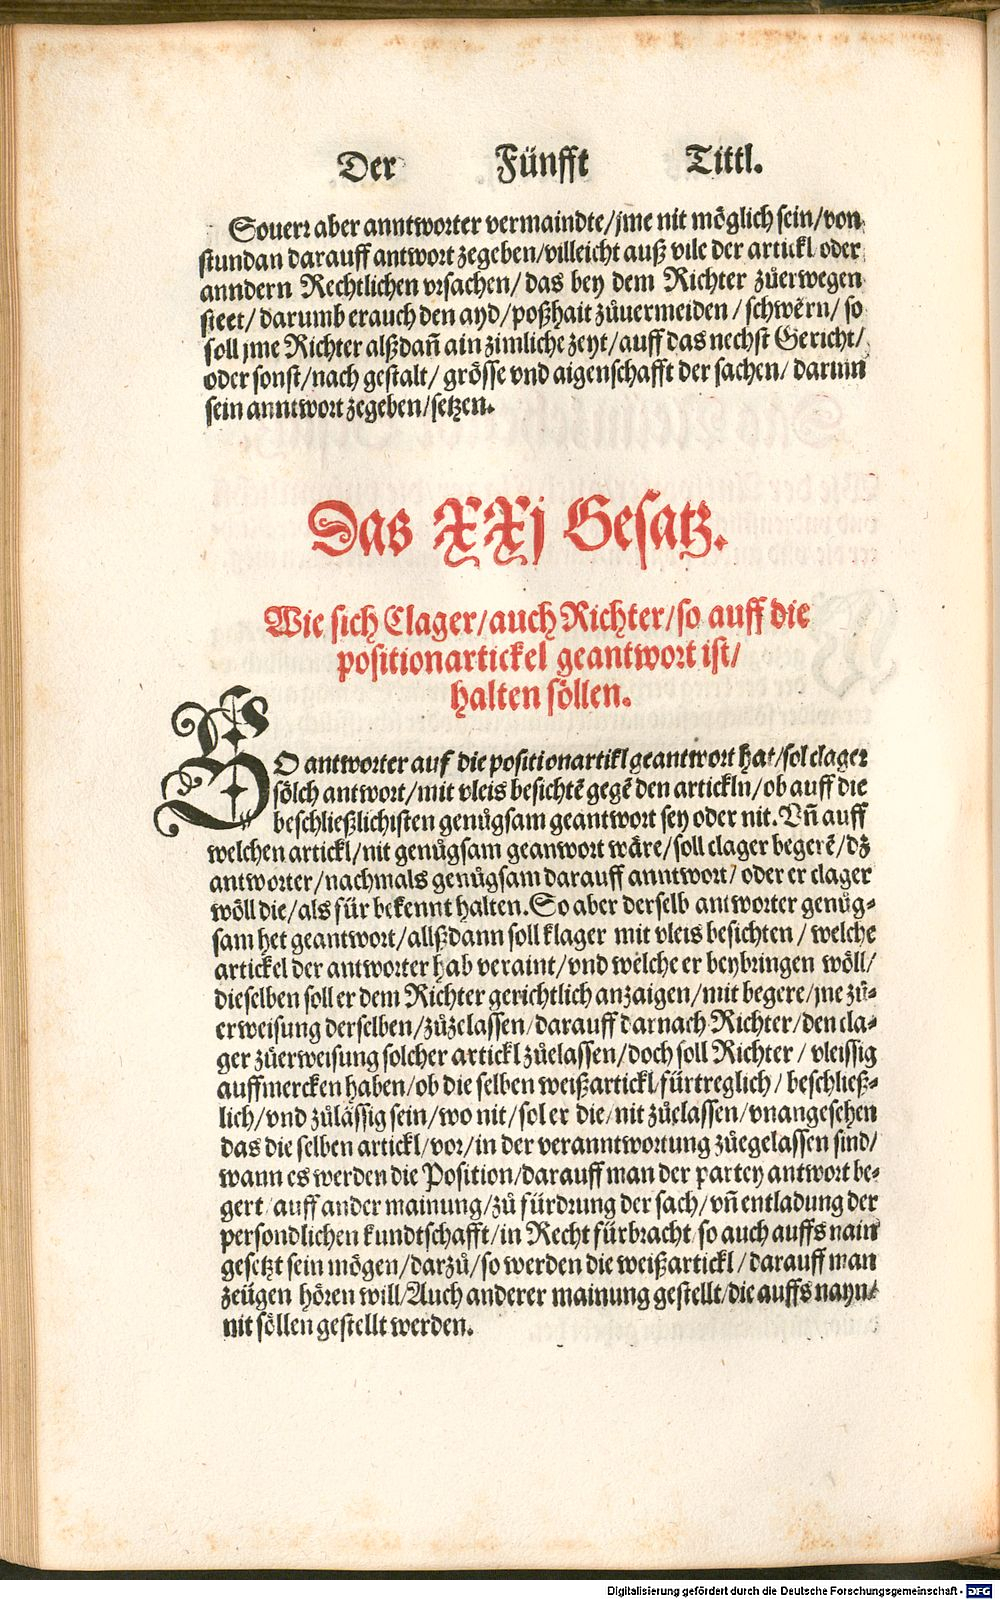 Der Fünfft Tittl.
Souerr aber anntworter vermaindte/jme nit möglich sein/von
stundan darauff antwort zegeben/villeicht auß vile der artickl oder
anndern Rechtlichen vrsachen/ das bey dem Richter zůerwegen
steet/ darumb er auch den ayd/ poßhait zůuermeiden / schwẽrn/ so
soll jme Richter alßdañ ain zimliche zeyt/ auff das nechst Gericht/
oder sonst/ nach gestalt/ grösse vnd aigenschafft der sachen/ darinn
sein anntwort zegeben/ setzen.
Das XXj Gesatz.
Wie sich Clager/ auch Richter/ so auff die
positionartickel geantwort ist/
halten söllen.
SO antworter auf die positionartikl geantwort hat/ sol clager
sölch antwort/ mit vleis besichtẽ gegẽ den artickln/ ob auff die
beschließlichisten genůgsam geantwort sey oder nit. Vñ auff
welchen artickl/ nit genůgsam geanwort wäre/ soll clager begerẽ/ dz
antworter/ nachmals genůgsam darauff anntwort/ oder er clager
wöll die/ als für bekennt halten. So aber derselb antworter genůg-
sam het geantwort/ allßdann soll klager mit vleis besichten / welche
artickel der antworter hab veraint/ vnd welche er beybringen wöll/
dieselben soll er dem Richter gerichtlich anzaigen/ mit begere/ jne zů-
erweisung derselben/ zůzelassen/ darauff darnach Richter/ den cla-
ger zůerweisung solcher artickl zůelassen/ doch soll Richter / vleissig
auffmercken haben/ ob die selben weißartickl fürtreglich / beschließ-
lich/ vnd zůlässig sein/ wo nit/ sol er die/ nit zůelassen/ vnangesehen
das die selben artickl/ vor/ in der veranntwortung zůegelassen sind/
wann es werden die Position/ darauff man der partey antwort be-
gert/ auff ander mainung/ zů fürdrung der sach/ vñ entladung der
persondlichen kundtschafft/ in Recht fürbracht/ so auch auffs nain
gesetzt sein mögen/ darzů/ so werden die weißartickl / darauff man
zeügen hören will/ Auch anderer mainung gestellt/ die auffs nayn/
nit söllen gestellt werden.
Digitalisierung gefördert durch die Deutsche Forschungsgemeinschaft - DFG